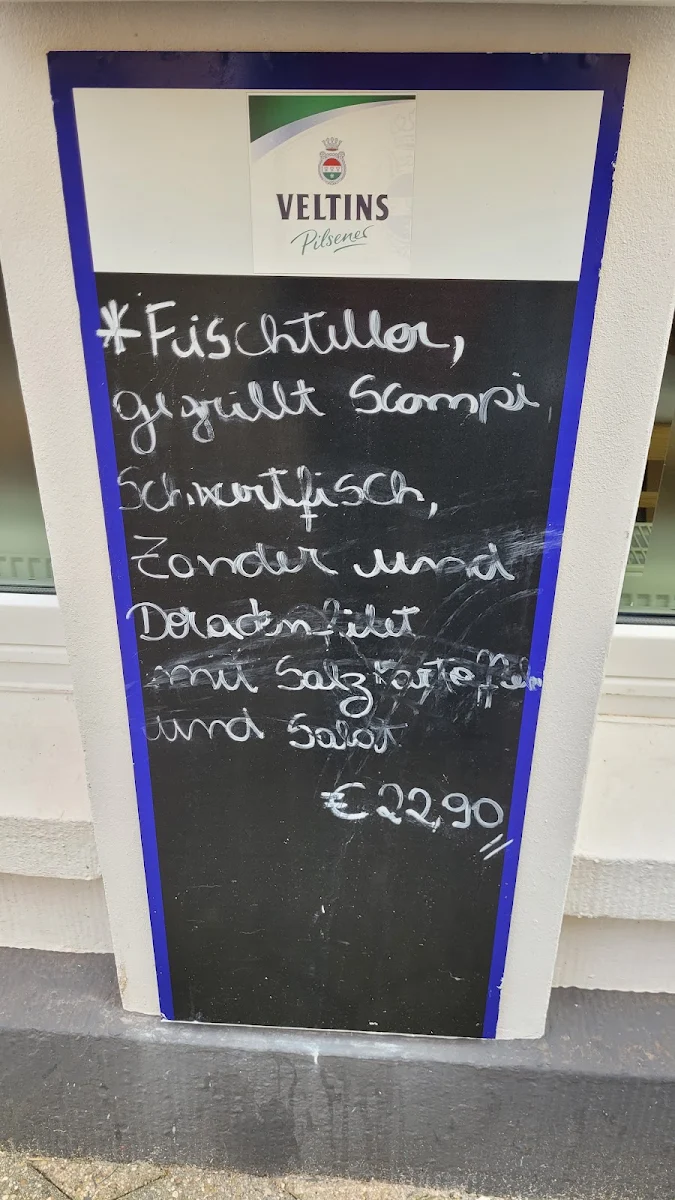 VELTINS
Pilsener
*Fischteller,
gegrillt Scampi,
Schwertfisch,
Zander und
Doradenfilet
mit Salzkartoffeln
und Salat
€22,90